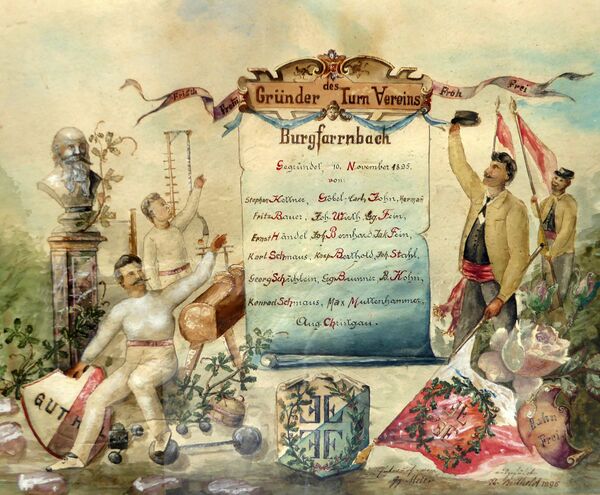 Frisch
Fromm
Froh
Frei
Gründer des Turn Vereins
Burgfarrnbach
Gegründet, 10. November 1895.
von:
Stephan Kellner, Göbel, Carl, John, Herman
Fritz Bauer, Joh. Wirth, Gg. Fein,
Ernst Händel Joh. Bernhard Jak. Fein,
Karl Schmaus, Kasp. Berthold, Joh. Stahl,
Georg Schühlein, Geg. Brunner, B. Hohn,
Konrad Schmaus, Max Muttenhammer,
Aug. Christgau.
GUT H
F F
F F
Bahn
Frei
1896